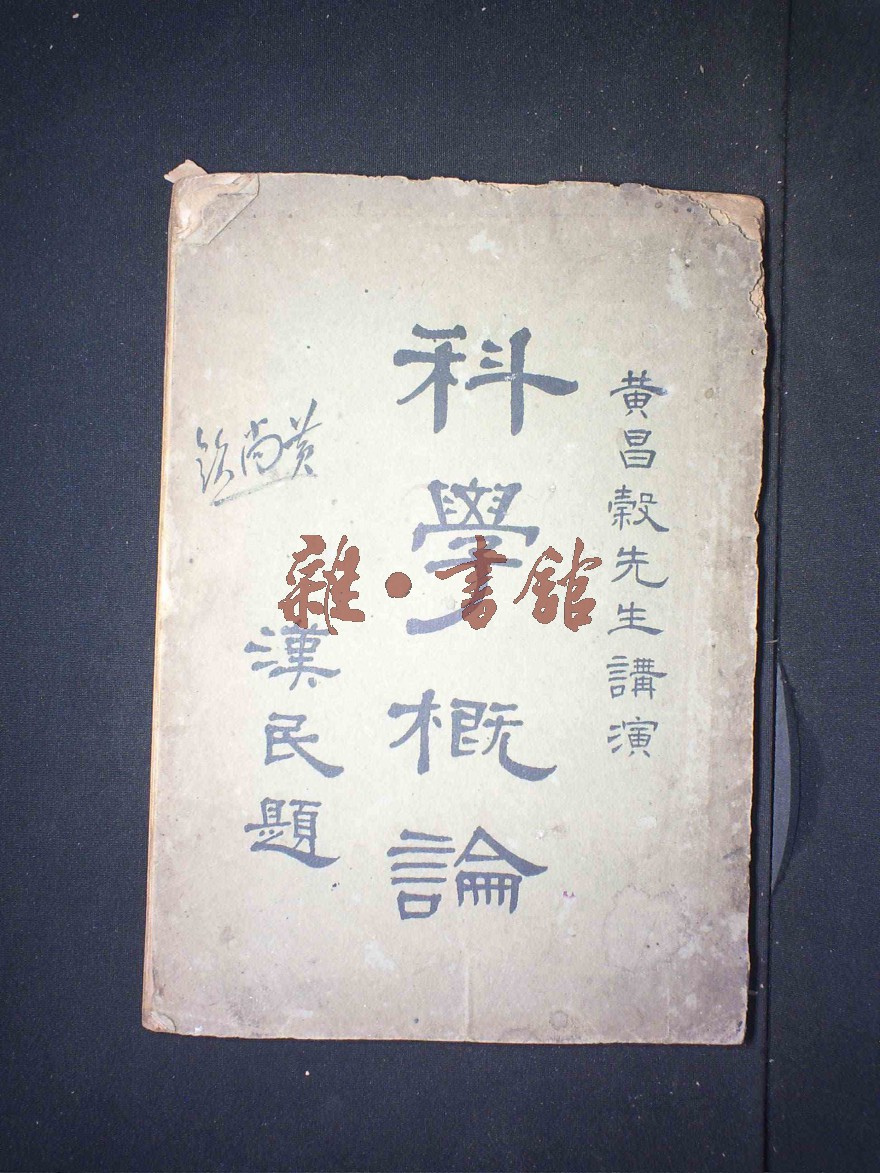 黃昌穀先生講演
科學概論
漢民題
黄尚欽
雜·書館